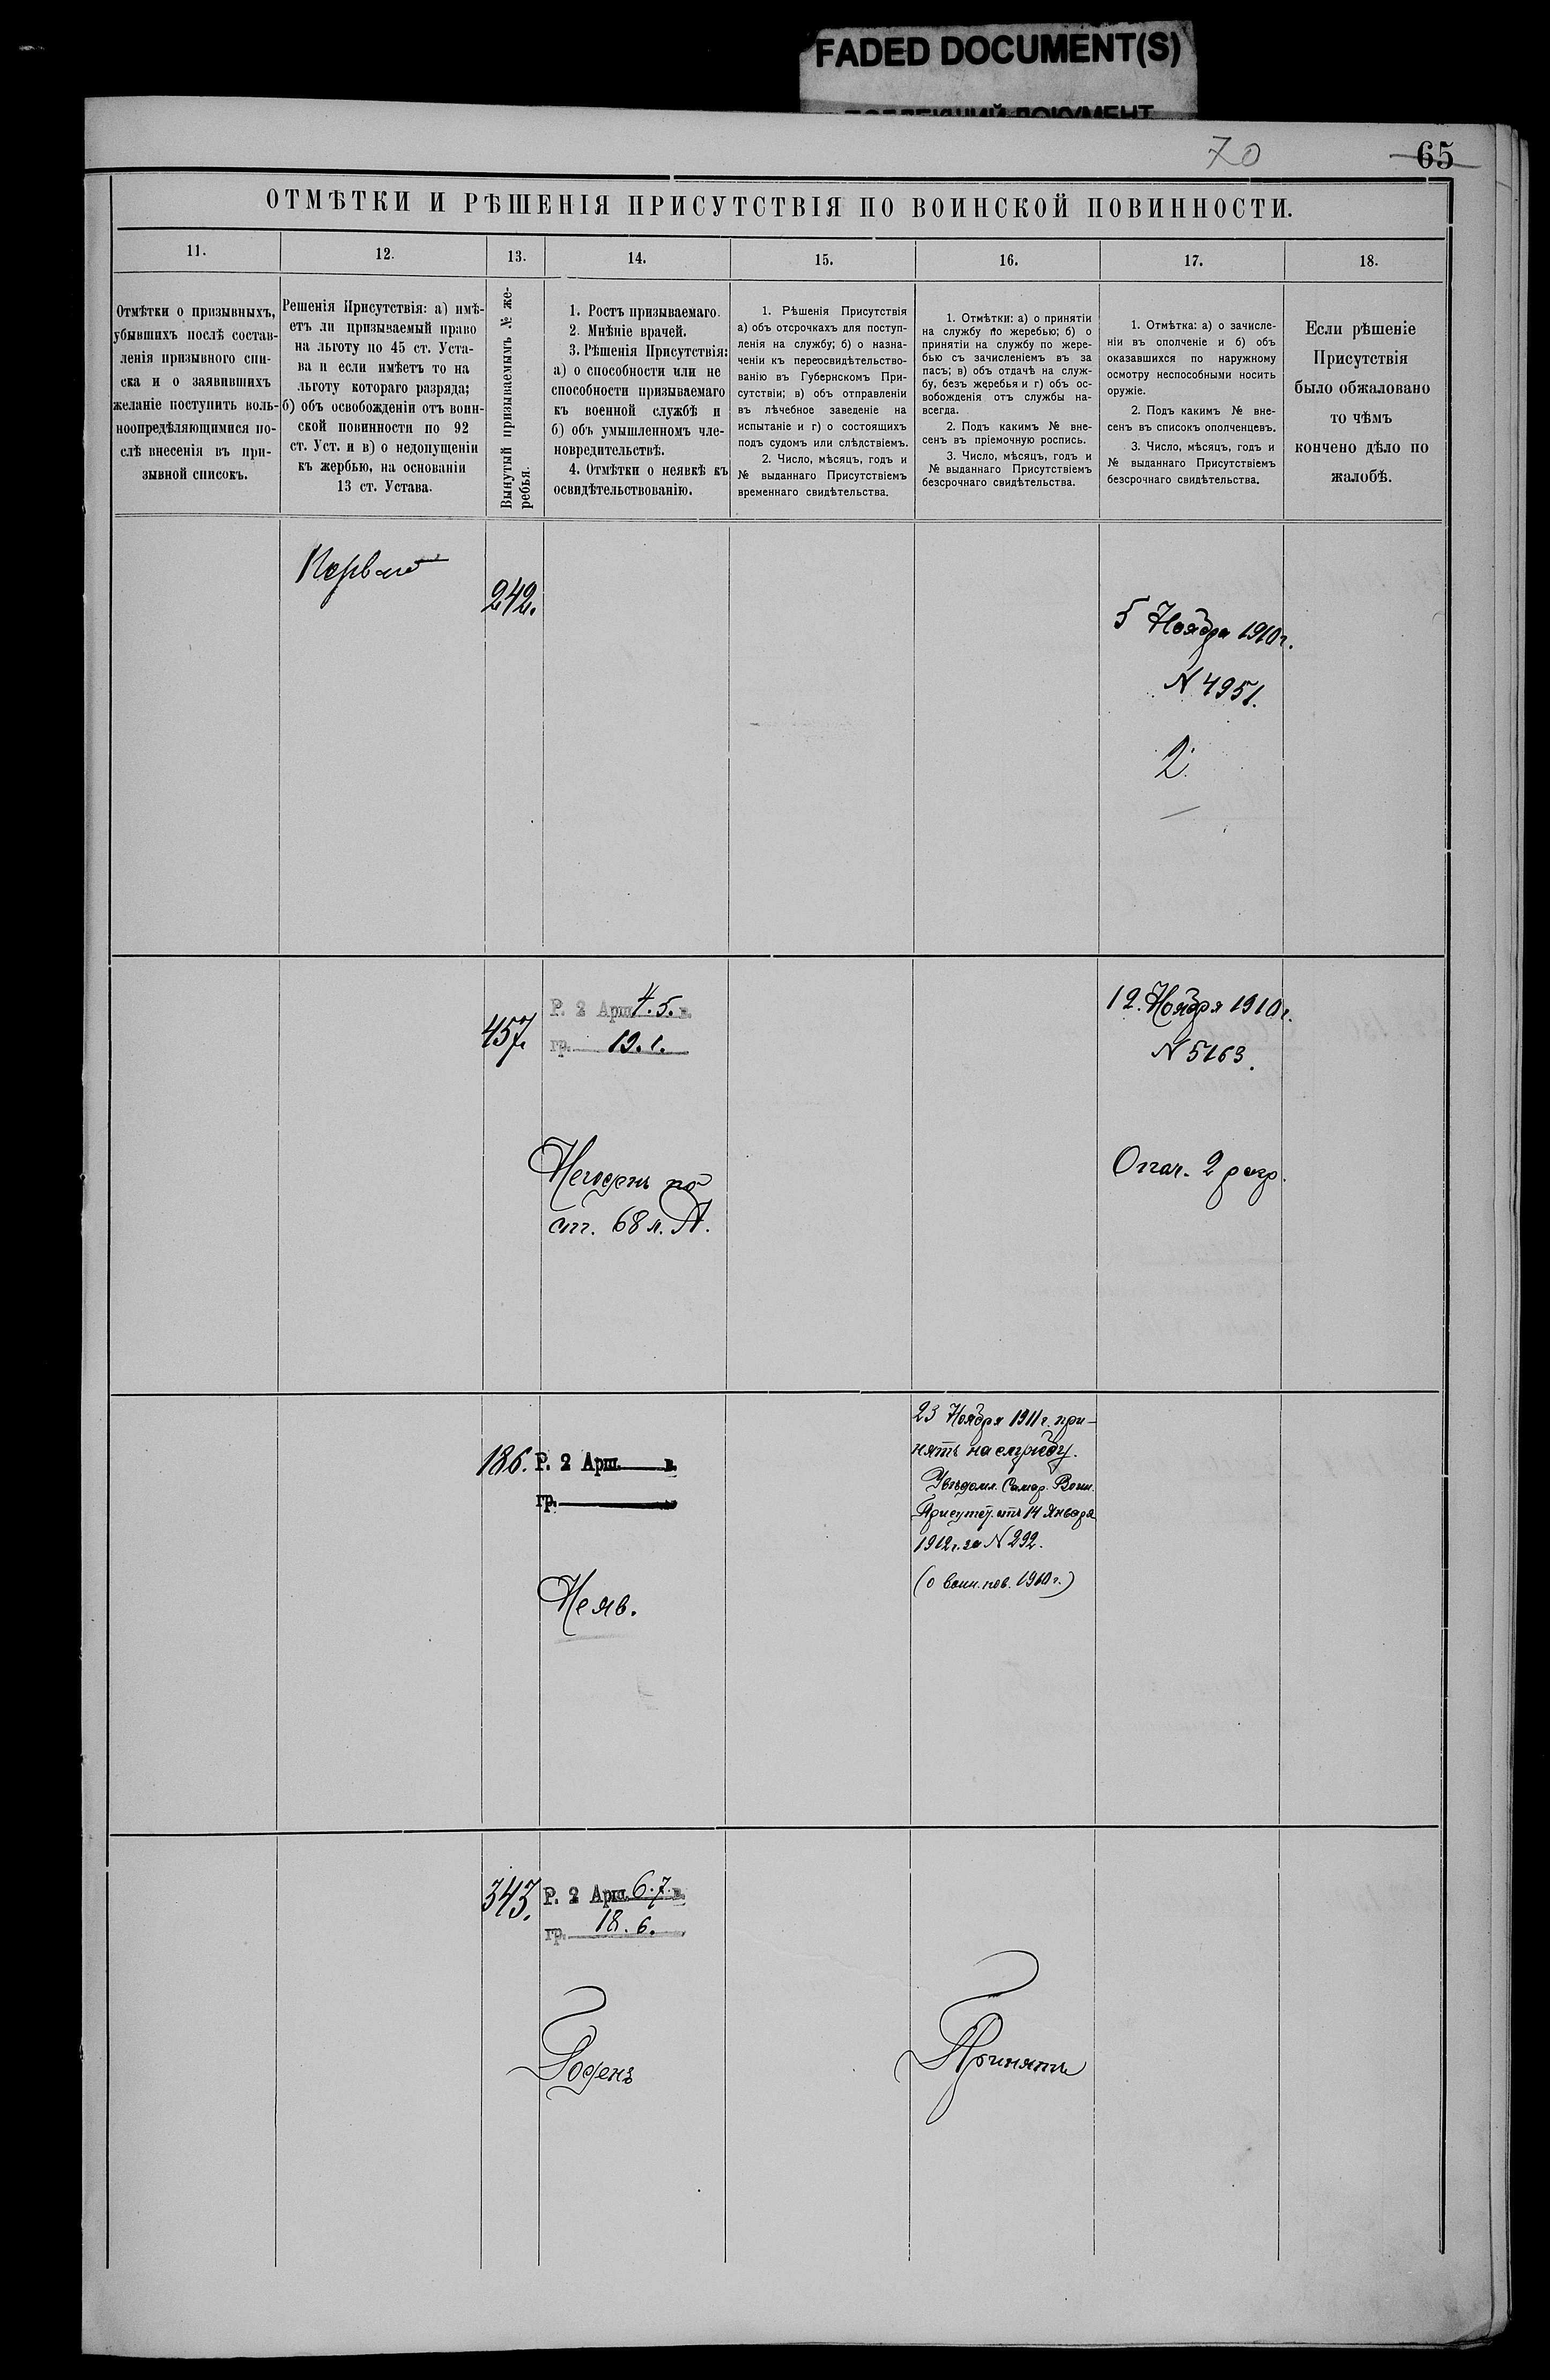 FADED DOCUMENT(S)
70
65
ОТМѢТКИ И РѢШЕНІЯ ПРИСУТСТВІЯ ПО ВОИНСКОЙ ПОВИННОСТИ.
11.
12.
13.
14.
15.
16.
17.
18.
Отмѣтки о призывныхъ,
убывшихъ послѣ состав-
ленія призывного спи-
ска и о заявившихъ
желаніе поступить воль-
ноопредѣляющимися по-
слѣ внесенія въ при-
зывной списокъ.
Решенія Присутствія: а) имѣ-
етъ ли призываемый право
на льготу по 45 ст. Уста-
ва и если имѣетъ то на
льготу котораго разряда;
б) объ освобожденіи отъ воин-
ской повинности по 92
ст. Уст. и в) о недопущеніи
къ жербью, на основаніи
13 ст. Устава.
Вынутый призываемымъ № же-
ребья.
1. Ростъ призываемаго.
2. Мнѣніе врачей.
3. Рѣшенія Присутствія:
а) о способности или не
способности призываемаго
къ военной службѣ и
б) объ умышленномъ чле-
новредительствѣ.
4. Отмѣтки о неявкѣ къ
освидѣтельствованію.
1. Рѣшенія Присутствія
а) объ отсрочкахъ для поступ-
ленія на службу; б) о назна-
ченіи къ переосвидѣтельство-
ванію въ Губернскомъ При-
сутствіи; в) объ отправленіи
въ лѣчебное заведеніе на
испытаніе и г) о состоящихъ
подъ судомъ или слѣдствіемъ.
2. Число, мѣсяцъ, годъ и
№ выданнаго Присутствіемъ
временнаго свидѣтельства.
1. Отмѣтки: а) о принятіи
на службу по жеребью; б) о
принятіи на службу по жере-
бью съ зачисленіемъ въ за
пасъ; в) объ отдачѣ на служ-
бу, безъ жеребья и г) объ ос-
вобожденія отъ службы на-
всегда.
2. Подъ какимъ № вне-
сенъ въ пріемочную роспись.
3. Число, мѣсяцъ, годъ и
№ выданнаго Присутствіемъ
безсрочнаго свидѣтельства.
1. Отмѣтка: а) о зачисле-
ніи въ ополченіе и б) объ
оказавшихся по наружному
осмотру неспособными носить
оружіе.
2. Подъ какимъ № вне-
сенъ въ списокъ ополченцевъ.
3. Число, мѣсяцъ, годъ и
№ выданнаго Присутствіемъ
безсрочнаго свидѣтельства.
Если рѣшеніе
Присутствія
было обжаловано
то чѣмъ
кончено дѣло по
жалобѣ.
242.
5 Ноября 1910г.
N 4951.
2.
457.
Р. 2 Арш. 4.5. в.
гр. 19.1.
Негоденъ по
ст. 68 л. А.
12. Ноября 1910г.
N 5163.
Опол. 2 разр.
186.
Р. 2 Арш. в.
гр.
Неяв.
23 Ноября 1911г. при-
нятъ на службу.
Увѣдомл. Самар. Воин.
Присутст. отъ 14 Января
1912г. за N 292.
(о воин. пов. 1910г.)
343.
Р. 2 Арш. 6.7. в.
гр. 18.6.
Годенъ
Принятъ